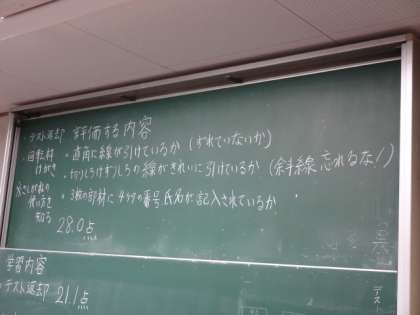 ・テスト返却 評価する内容
・回転材
けがき
・直角に線が引けているか(ずれていないか)
・切りしろけずりしろの線がきれいに引けているか(余計線忘れるな!)
さしがねの
使い方を
知る
・3枚の部材に4ケタの番号氏名が記入されているか
28.0点
学習内容
・テスト返却 21.1点
テスト